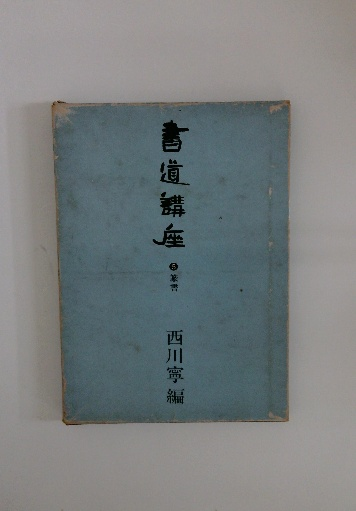 書道講座
❺篆書
西川寧編